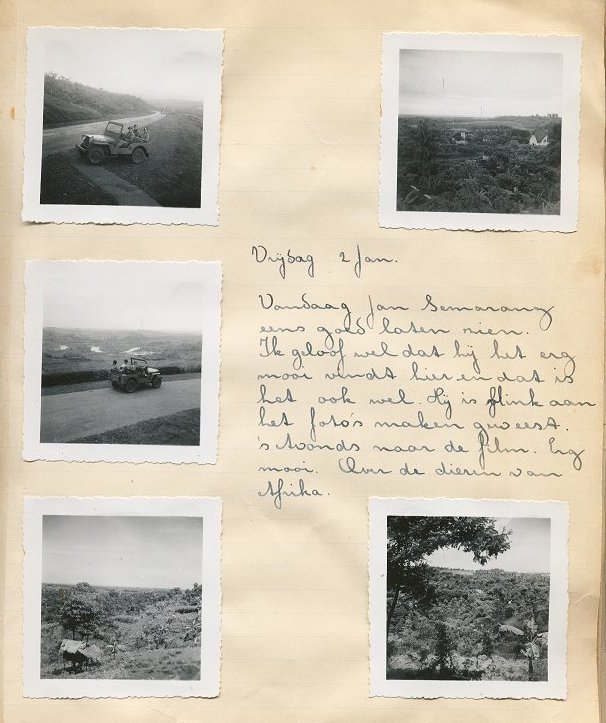 Vrijdag 2 Jan.
Vandaag Jan Semarang
eens goed laten zien.
Ik geloof wel dat hij het erg
mooi vindt hier en dat is
het ook wel. Hij is flink aan
het foto's maken geweest.
's Avonds naar de film. Erg
mooi. Over de dieren van
Afrika.